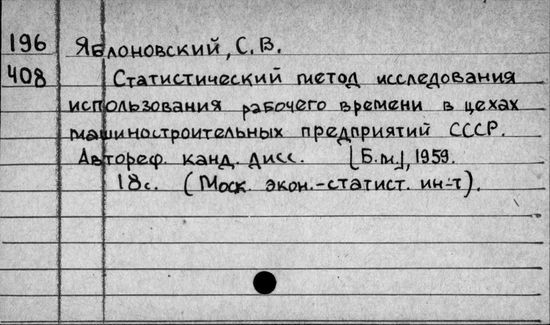 196 Яблоновский, С. В.
408 Статистический метод исследования
использования рабочего времени в цехах
машиностроительных предприятий СССР.
Автореф. канд. дисс. [Б.м.], 1959.
18с. (Моск. экон.-статист. ин-т).